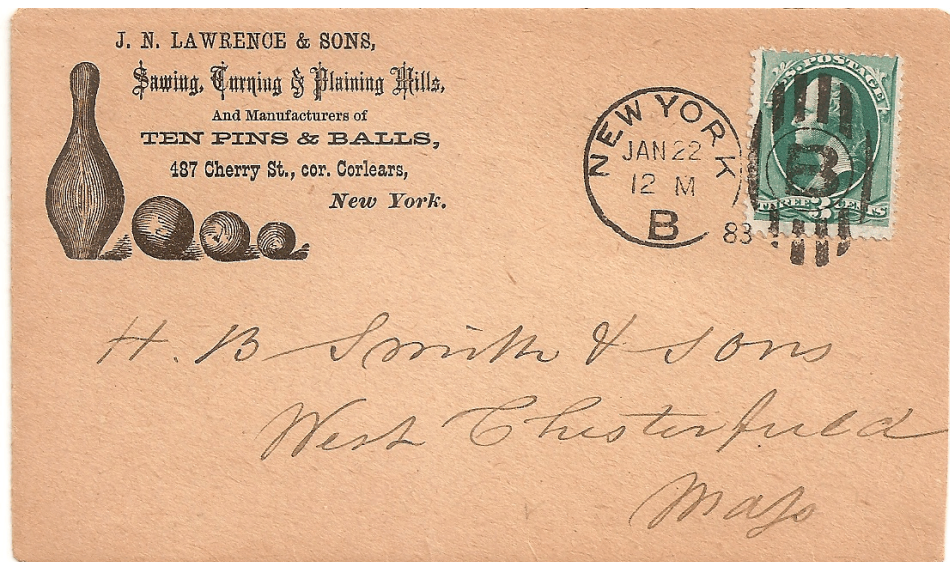 J. N. LAWRENCE & SONS,
Sawing, Turning & Plaining Mills,
And Manufacturers of
TEN PINS & BALLS,
487 Cherry St., cor. Corlears,
New York.
NEW YORK
JAN 22
12 M
B
83
U.S. POSTAGE
B
THREE 3 CENTS
H. B Smith & Sons
West Chesterfield
Mass